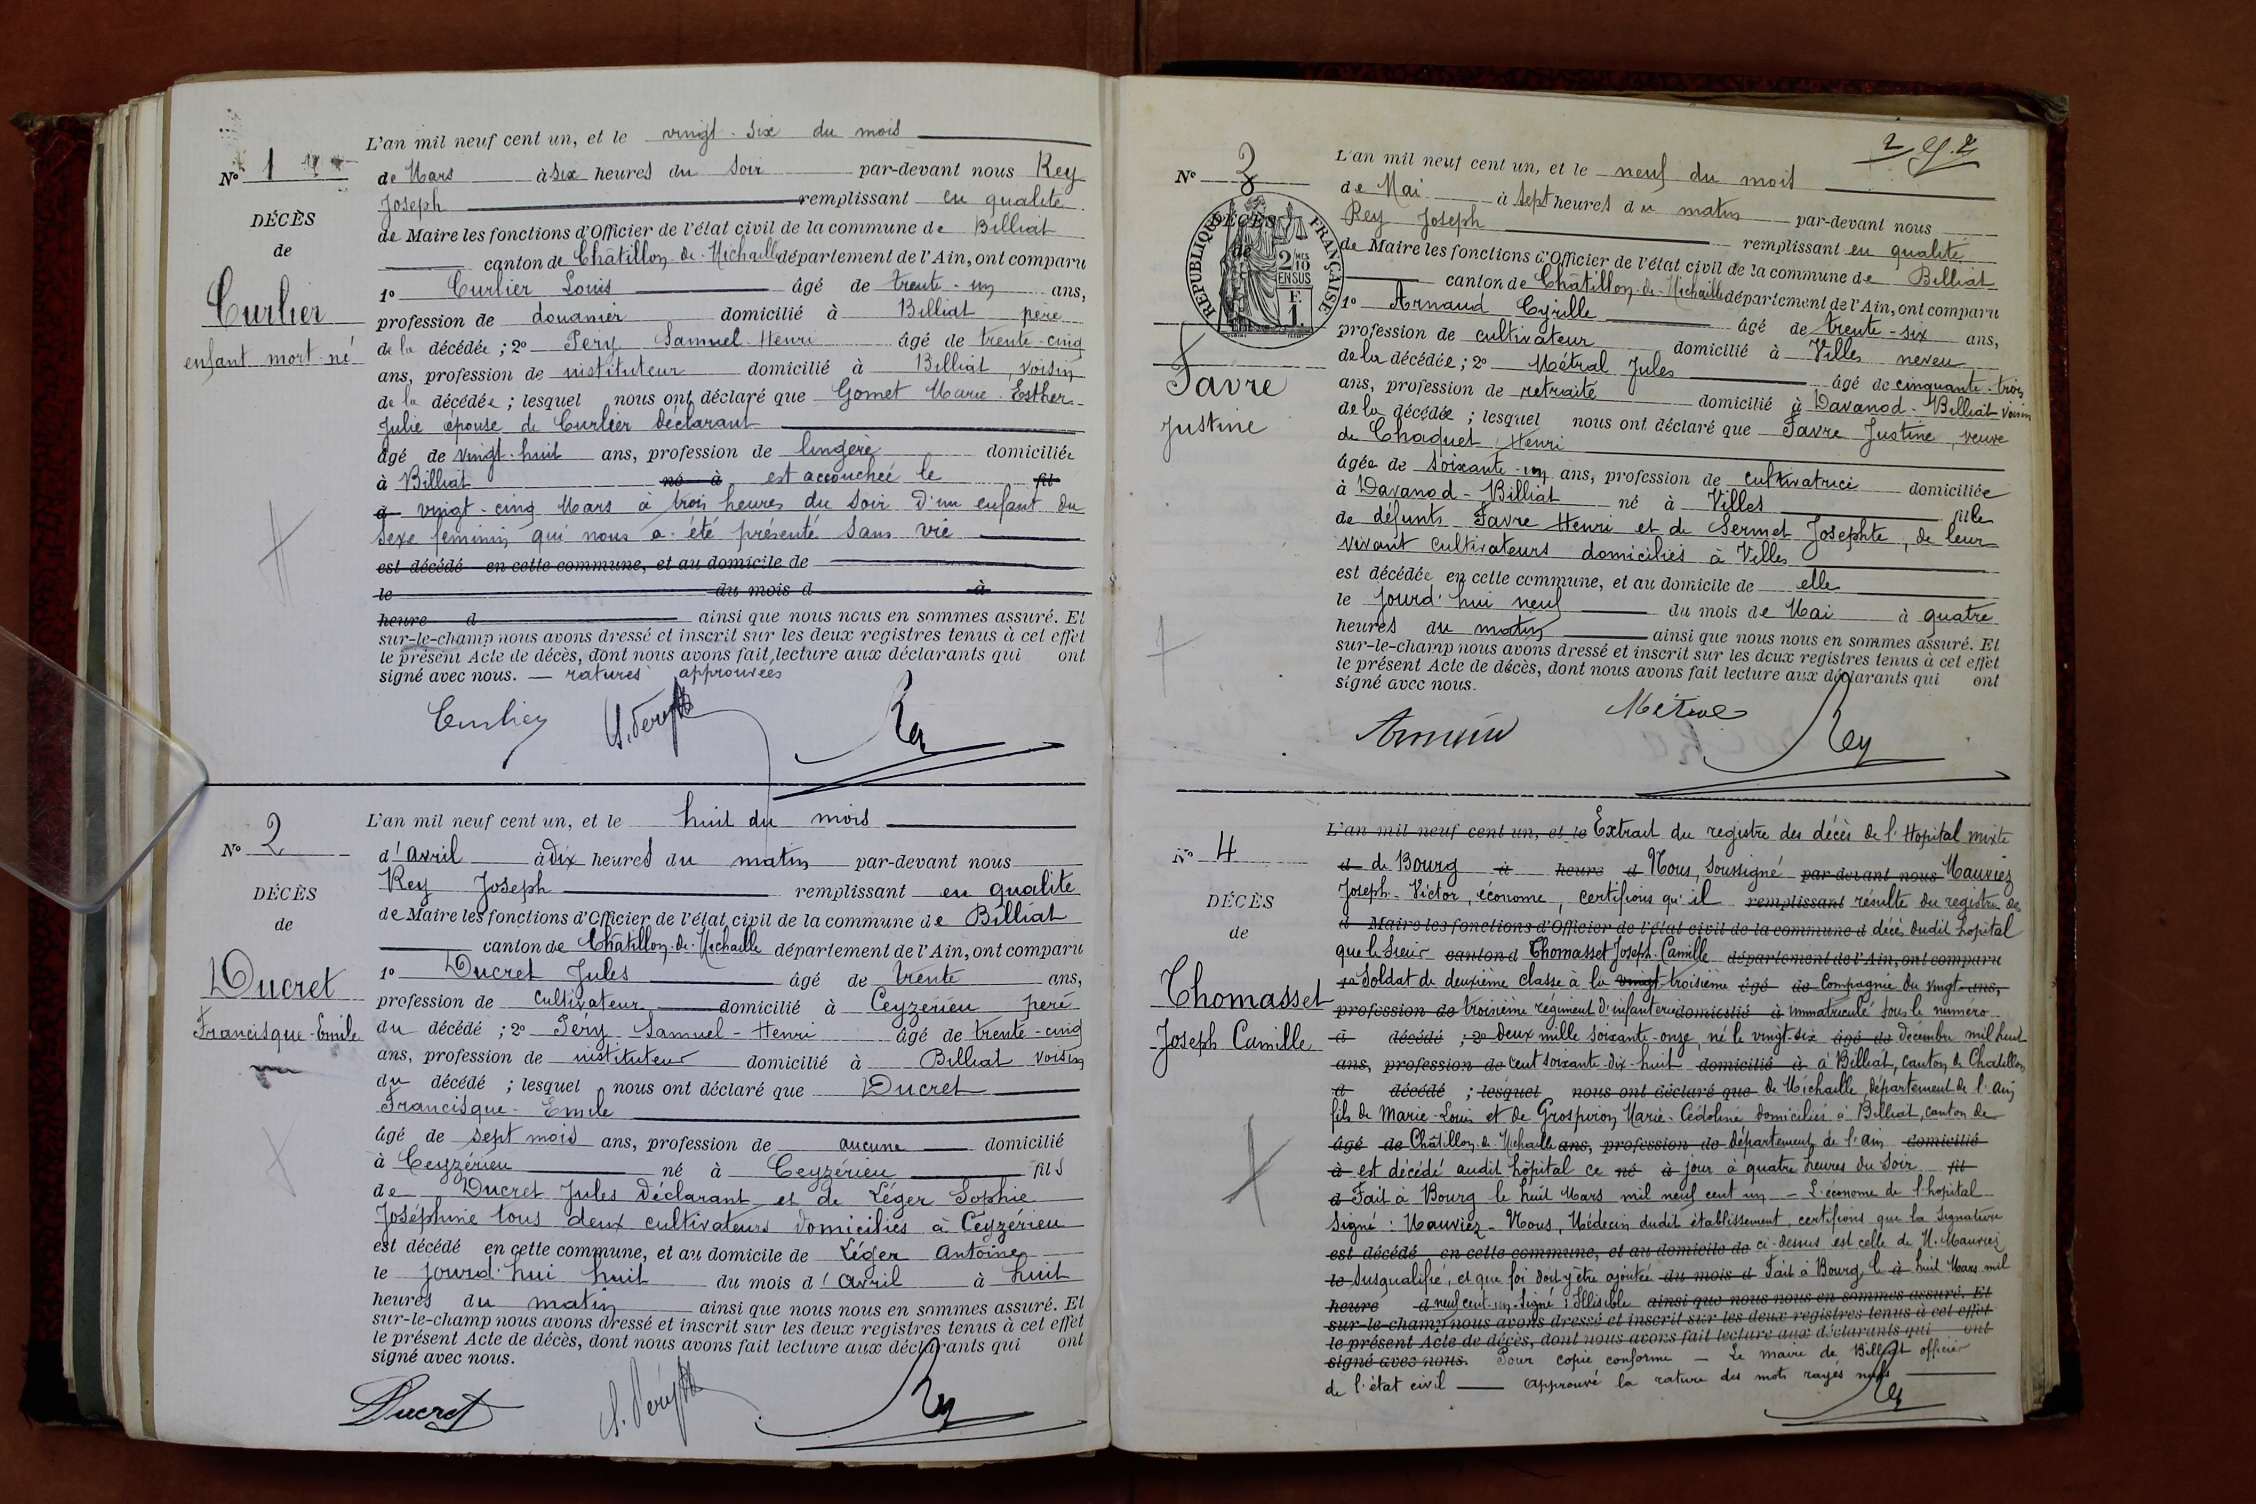 L'an mil neuf cent un, et le vingt-six du mois
N° 1
de Mars à six heures du soir par-devant nous Rey
Joseph remplissant en qualité
DÉCÈS
de Maire les fonctions d'Officier de l'état civil de la commune de Billiat
de
canton de Châtillon-de-Michaille département de l'Ain, ont comparu
1° Curlier Louis âgé de trente-un ans,
Curlier
profession de douanier domicilié à Billiat père
enfant mort-né
de la décédée ; 2° Pery Samuel-Henri âgé de trente-cinq
ans, profession de instituteur domicilié à Billiat, voisin
de la décédée ; lesquel nous ont déclaré que Gomet Marie-Esther-
Julie épouse de Curlier déclarant
âgé de vingt-huit ans, profession de lingère domiciliée
à Billiat né à est accouchée le fil
d vingt-cinq Mars à trois heures du soir d'un enfant du
sexe féminin qui nous a été présenté sans vie
est décédé en cette commune, et au domicile de
le du mois d à
heure d ainsi que nous nous en sommes assuré. Et
sur-le-champ nous avons dressé et inscrit sur les deux registres tenus à cet effet
le présent Acte de décès, dont nous avons fait lecture aux déclarants qui ont
signé avec nous. — ratures approuvées
Curlier S. Pery Rey
L'an mil neuf cent un, et le huit du mois
N° 2
d'avril à dix heures du matin par-devant nous
Rey Joseph remplissant en qualité
DÉCÈS
de Maire les fonctions d'Officier de l'état civil de la commune de Billiat
de
canton de Châtillon-de-Michaille département de l'Ain, ont comparu
1° Ducret Jules âgé de trente ans,
Ducret
profession de cultivateur domicilié à Ceyzérieu père
Francisque-Emile
du décédé ; 2° Pery Samuel-Henri âgé de trente-cinq
ans, profession de instituteur domicilié à Billiat voisin
du décédé ; lesquel nous ont déclaré que Ducret
Francisque-Emile
âgé de sept mois ans, profession de aucune domicilié
à Ceyzérieu né à Ceyzérieu fils
de Ducret Jules déclarant et de Léger Sophie
Joséphine tous deux cultivateurs domiciliés à Ceyzérieu
est décédé en cette commune, et au domicile de Léger Antoine
le jourd'hui huit du mois d'avril à huit
heures du matin ainsi que nous nous en sommes assuré. Et
sur-le-champ nous avons dressé et inscrit sur les deux registres tenus à cet effet
le présent Acte de décès, dont nous avons fait lecture aux déclarants qui ont
signé avec nous.
Ducret S. Pery Rey
L'an mil neuf cent un, et le neuf du mois
N° 3
de Mai à sept heures du matin par-devant nous
Rey Joseph remplissant en qualité
DÉCÈS
de
RÉPUBLIQUE FRANÇAISE
2 MES 10 EN SUS
F. 1.
de Maire les fonctions d'Officier de l'état civil de la commune de Billiat
canton de Châtillon-de-Michaille département de l'Ain, ont comparu
1° Arnaud Cyrille âgé de trente-six ans,
profession de cultivateur domicilié à Villes neveu
Favre
Justine
de la décédée ; 2° Métral Jules âgé de cinquante-trois
ans, profession de retraité domicilié à Davanod-Billiat voisin
de la décédée ; lesquel nous ont déclaré que Favre Justine, veuve
de Chaquet Henri
âgée de soixante-un ans, profession de cultivatrice domiciliée
à Davanod-Billiat né à Villes fille
de défunts Favre Henri et de Sermet Josephte, de leur
vivant cultivateurs domiciliés à Villes
est décédée en cette commune, et au domicile de elle
le jourd'hui neuf du mois de Mai à quatre
heures du matin ainsi que nous nous en sommes assuré. Et
sur-le-champ nous avons dressé et inscrit sur les deux registres tenus à cet effet
le présent Acte de décès, dont nous avons fait lecture aux déclarants qui ont
signé avec nous.
Métral Rey
L'an mil neuf cent un, et le Extrait du registre des décès de l'Hopital mixte
N° 4
d de Bourg à heure d Nous, soussigné par-devant nous Mauviez
Joseph-Victor, économe, certifions qu'il remplissant résulte du registre des
DÉCÈS
d Maire les fonctions d'Officier de l'état civil de la commune d décès dudit hopital
de
que le Sieur canton d Thomasset Joseph-Camille département de l'Ain, ont comparu
1° Soldat de deuxième classe à la vingt-troisième âgé de Compagnie du vingt-ans,
Thomasset
profession de troisième régiment d'infanterie domicilié à immatriculé sous le numéro
Joseph Camille
d décédé ; 2° deux mille soixante-onze, né le vingt-six âgé de décembre mil huit
ans, profession de cent soixante-dix-huit domicilié à à Billiat, canton de Chatillon
d décédé ; lesquel nous ont déclaré que de Michaille, département de l'Ain
fils de Marie-Louis et de Grospiron Marie-Cédoline domiciliés à Billiat, canton de
âgé de Châtillon-de-Michaille ans, profession de département de l'ain domicilié
à est décédé audit hôpital ce né à jour à quatre heures du soir fil
d Fait à Bourg le huit Mars mil neuf cent un — L'économe de l'hopital
Signé : Mauviez — Nous, Médecin dudit établissement, certifions que la signature
est décédé en cette commune, et au domicile de ci-dessus est celle de M. Mauviez
le susqualifié, et que foi doit y être ajoutée du mois d Fait à Bourg, le à huit Mars mil
heure d neuf cent-un. Signé : Illisible ainsi que nous nous en sommes assuré. Et
sur-le-champ nous avons dressé et inscrit sur les deux registres tenus à cet effet
le présent Acte de décès, dont nous avons fait lecture aux déclarants qui ont
signé avec nous. Pour copie conforme — Le maire de Billiat officier
de l'état civil — approuvé la rature des mots rayés nuls
Rey